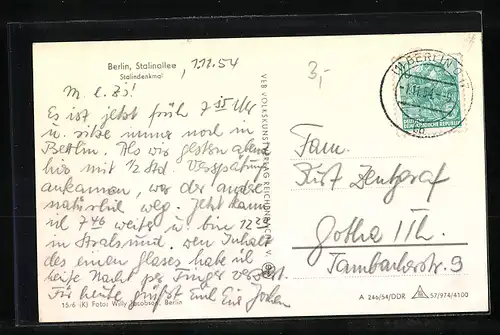 Berlin, Stalinallee
Stalindenkmal
, 1.11.54
3,-
M. l. B.!
Es ist jetzt früh 7 Uhr
u. sitze immer noch in
Berlin. Als wir gestern abend
hier mit 1/2 Std. Verspätung
ankamen, war der andre
natürlich weg. Jetzt kann
ich 7 46 weiter u. bin 12
in Stralsund. den Inhalt
des einen glases habe ich
heute Nacht per Finger
Für heute grüßt Euch Eur Jochen
15/6 (K) Foto: Willy Jacobsohn, Berlin
VEB VOLKSKUNSTVERLAG REICHENBACH
(1) BERLIN
-1.11.54
DEUTSCHE
DEMOKRATISCHE REPUBLIK
Fam.
Kurt Zentgraf
Gotha i Th.
Tambacherstr. 9
A 246/54/DDR 57/974/4100